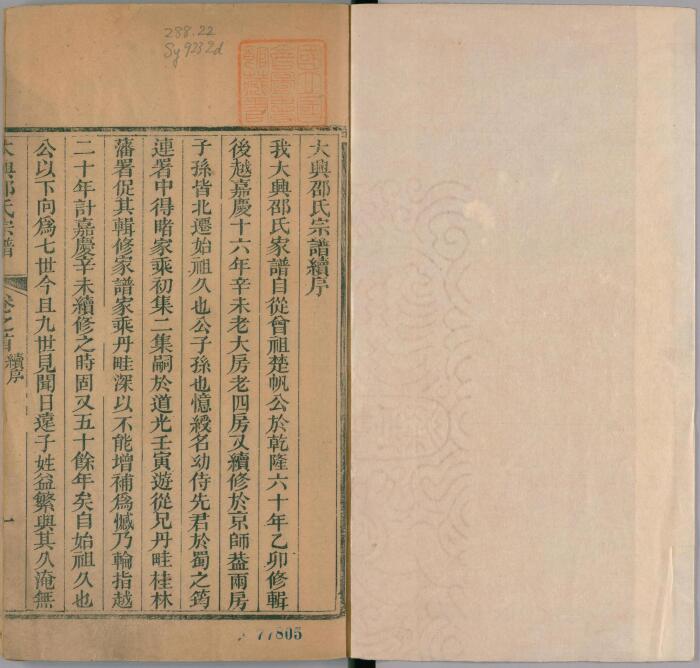 大興邵氏宗譜續序
我大興邵氏家譜自從曾祖楚帆公於乾隆六十年乙卯修輯
後越嘉慶十六年辛未老大房老四房又續修於京師葢兩房
子孫皆北遷始祖久也公子孫也憶綬名幼侍先君於蜀之筠
連署中得睹家乘初集二集嗣於道光壬寅遊從兄丹畦桂林
藩署促其輯修家譜家乘丹畦深以不能增補爲憾乃輪指越
二十年計嘉慶辛未續修之時固又五十餘年矣自始祖久也
公以下向爲七世今且九世見聞日遠子姓益繁與其久淹無
大興邵氏宗譜
卷之首 續序
一
288.22
Sy9232d
77805